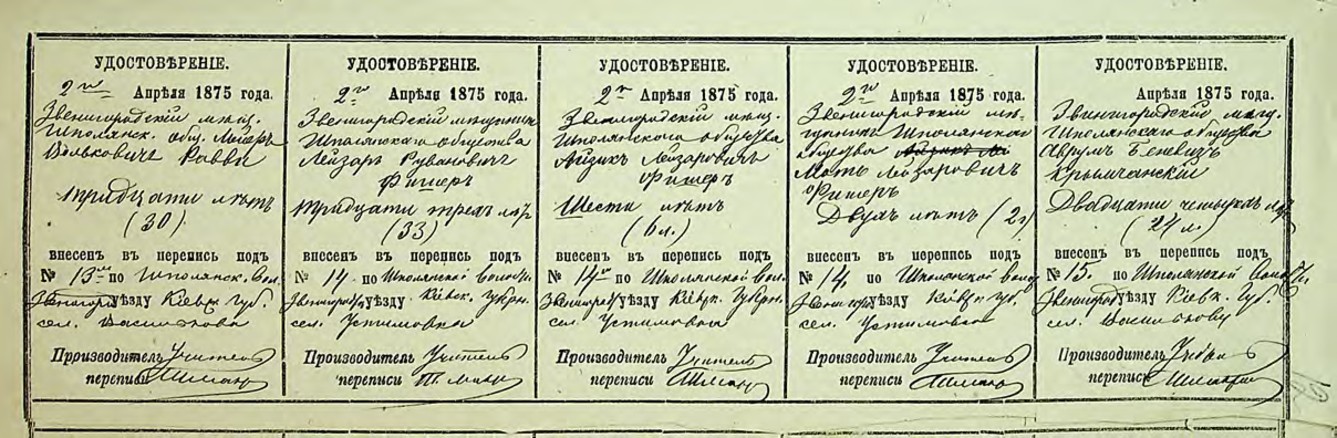 УДОСТОВѢРЕНІЕ.
2го Апрѣля 1875 года.
Звенигородскій мѣщ.
Шполянск. общ. Лейзеръ
Вольковичъ Рабви
тридцати лѣтъ
(30)
внесенъ въ перепись подъ
№ 13мъ по Шполянск. вол.
Звенигор. уѣзду Кіевск. губ.
сел. Василькова
Производитель Учитель
переписи
УДОСТОВѢРЕНІЕ.
2го Апрѣля 1875 года.
Звенигородскій мѣщанинъ
Шполянскаго общества
Лейзаръ Рувановичъ
Фишеръ
тридцати трехъ лѣт
(33)
внесенъ въ перепись подъ
№ 14. по Шполянской волости
Звенигород. уѣзду Кіевск. Губерн.
сел. Устимовка
Производитель Учитель
переписи
УДОСТОВѢРЕНІЕ.
2го Апрѣля 1875 года.
Звенигородскій мѣщ.
Шполянскаго общества
Айзикъ Лейзаровичъ
Фишеръ
Шести лѣтъ
(6 л.)
внесенъ въ перепись подъ
№ 14м по Шполянской вол.
Звенигород. уѣзду Кіевск. Губерн.
сел. Устимовка
Производитель Учитель
переписи
УДОСТОВѢРЕНІЕ.
2го Апрѣля 1875 года.
Звенигородскій мѣ-
щанинъ Шполянскаго
общества
Моть Лейзаровичъ
Фишеръ
Двухъ лѣтъ (2 г)
внесенъ въ перепись подъ
№ 14, по Шполянской волос
Звенигор. уѣзду Кіевск. губ.
сел. Устимовка
Производитель Учитель
переписи
УДОСТОВѢРЕНІЕ.
Апрѣля 1875 года.
Звенигородскій мѣщ.
Шполянскаго общества
Аврумъ Беневичъ
Крымчанскій
Двадцати четырехъ лѣт
(24 л.)
внесенъ въ перепись подъ
№ 15. по Шполянской волости
Звенигород. уѣзду Кіевск. Губ.
сел. Василькову
Производитель
переписи